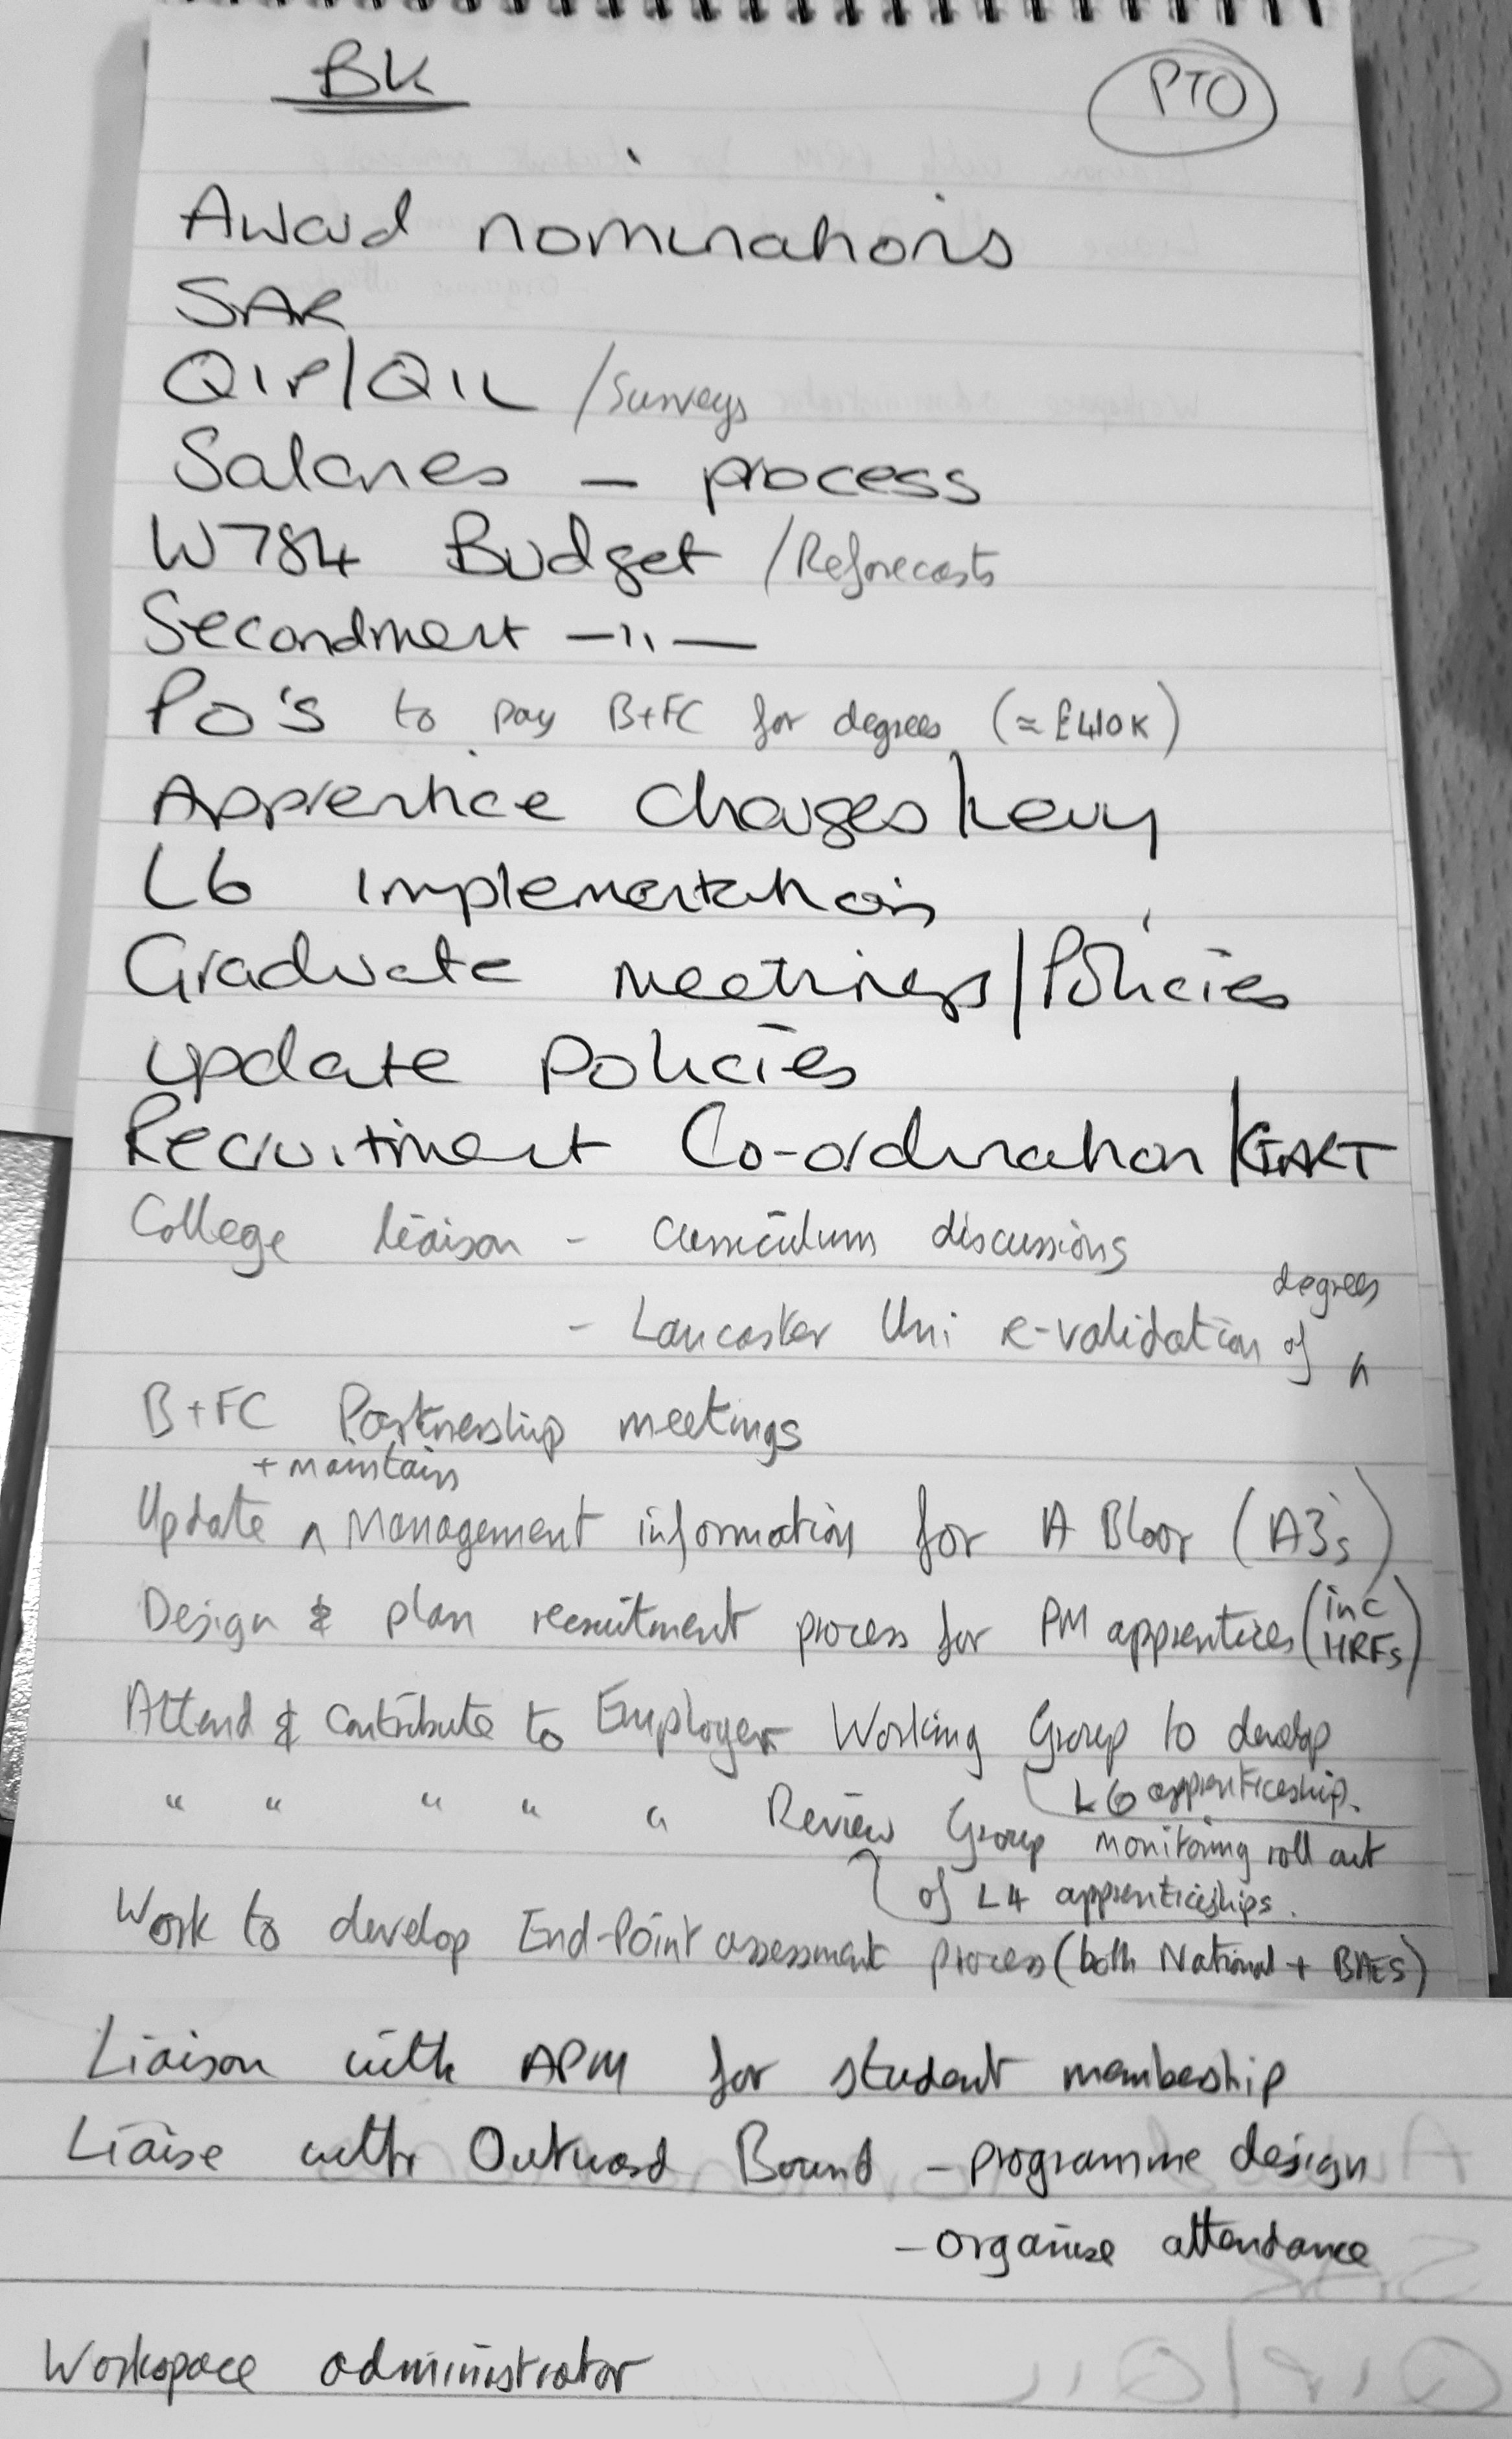 BK
PTO
Award nominations
SAR
QIP/QIL /Surveys
Salaries — process
W784 Budget /Reforecasts
Secondment —"—
PO's to pay B+FC for degrees (≈ £410K)
Apprentice Charges/Levy
L6 Implementation
Graduate Meetings/Policies
Update Policies
Recruitment Co-ordination/
College liaison - Curriculum discussions
degrees
- Lancaster Uni re-validation of ^
B+FC Partnership meetings
+ maintain
Update ^ Management information for A Bloor (A3's)
Design & plan recruitment process for PM apprentices (inc HRFs)
Attend & Contribute to Employer Working Group to develop
L6 apprenticeship.
" " " " " Review Group monitoring roll out
of L4 apprenticeships.
Work to develop End-Point assessment process (both National + BAES)
Liaison with APM for student membership
Liaise with Outward Bound - programme design
- organise attendance
Workspace administrator